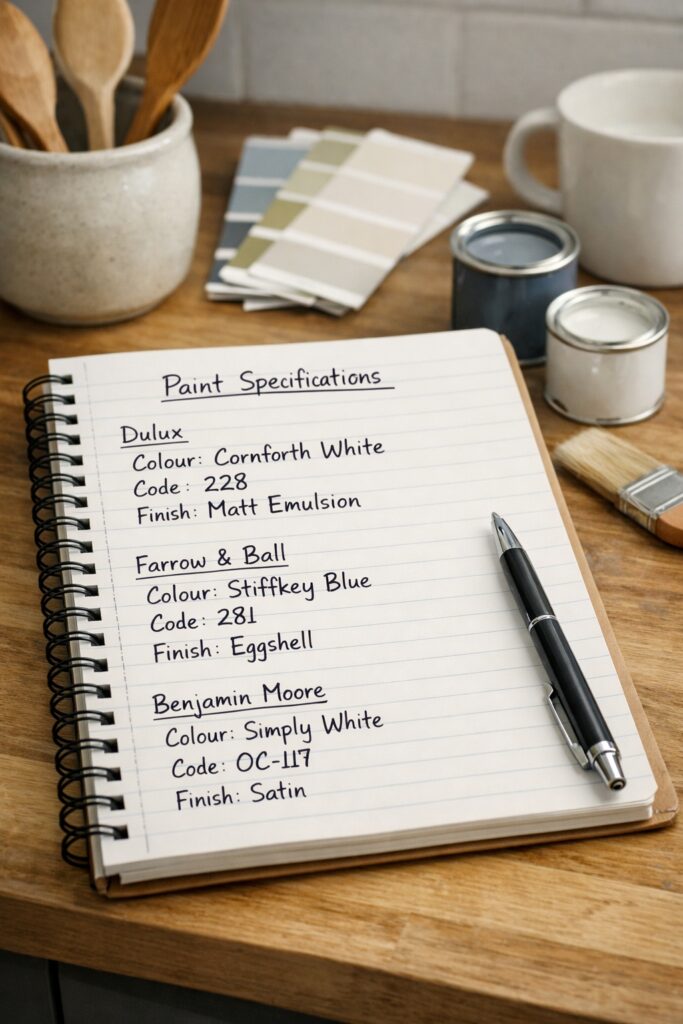 Paint Specifications
Dulux
Colour: Cornforth White
Code: 228
Finish: Matt Emulsion
Farrow & Ball
Colour: Stiffkey Blue
Code: 281
Finish: Eggshell
Benjamin Moore
Colour: Simply White
Code: OC-117
Finish: Satin